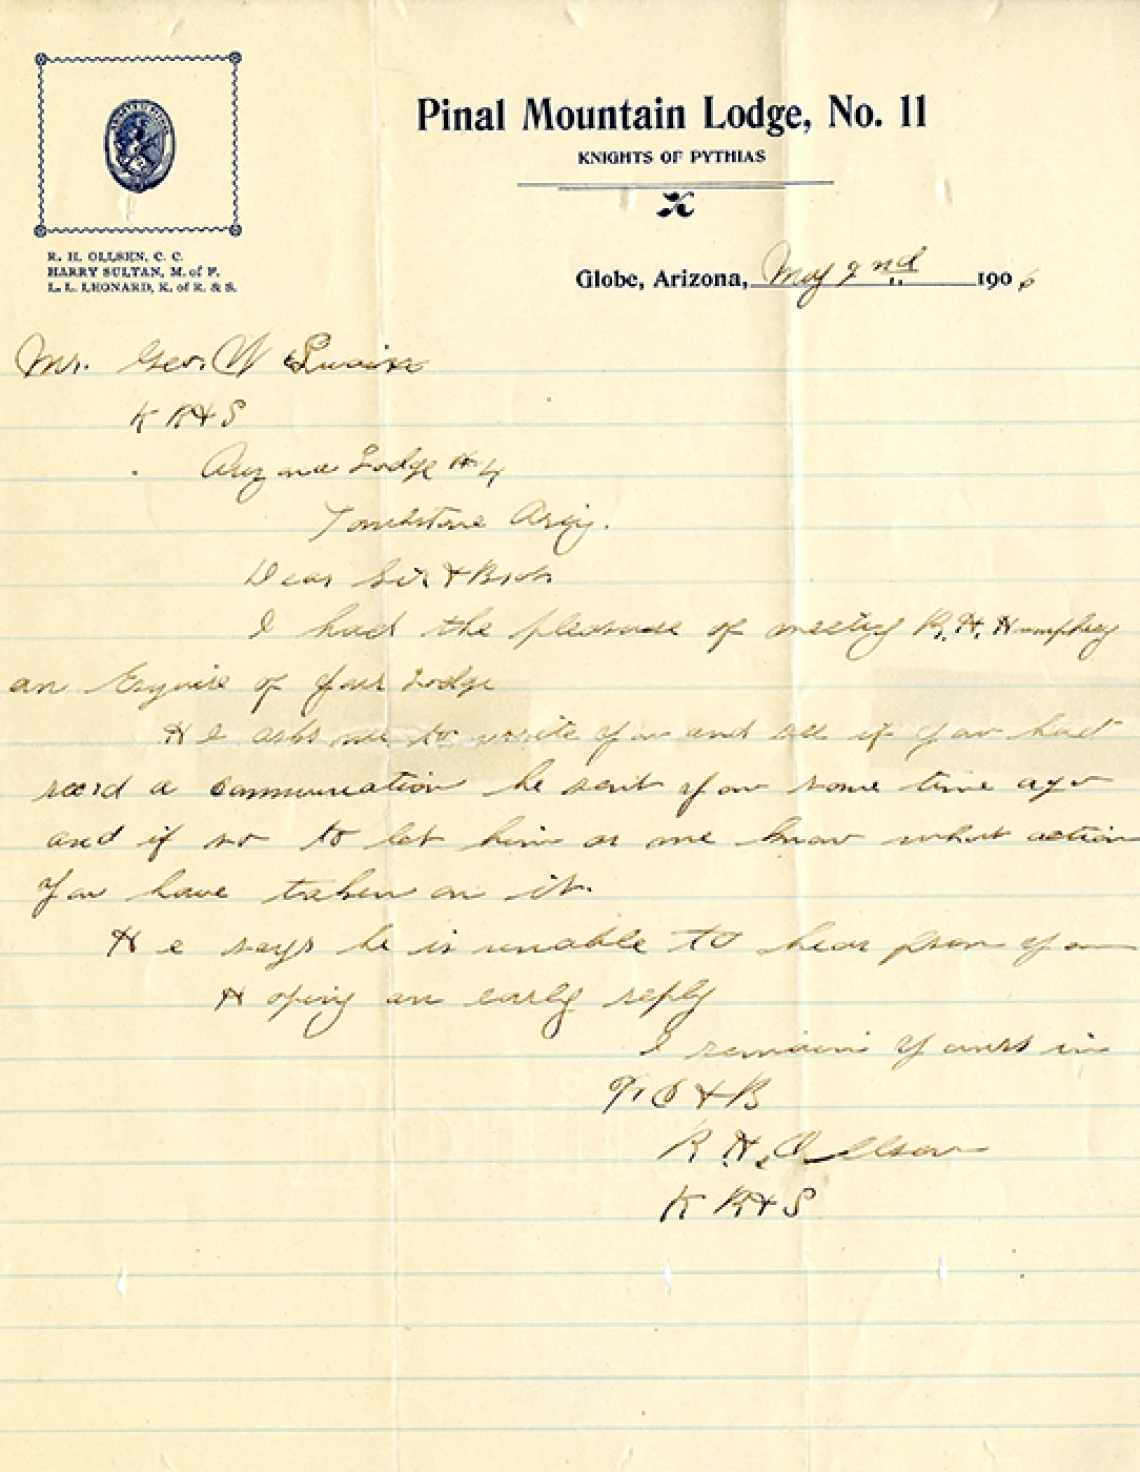 Pinal Mountain Lodge, No. 11
KNIGHTS OF PYTHIAS
R. H. OLLSEN, C. C.
HARRY SULTAN, M. of F.
L. L. LEONARD, K. of R. & S.
Globe, Arizona, May 2nd 1906
Mr. Geo. W Swain
K R & S
Arizona Lodge # 4
Tombstone Ariz.
Dear Sir & Broth
I had the pleasure of meeting R. H. Humphrey
an Esquire of your Lodge
He asks me to write you and see if you had
recd a communication he sent you some time ago
and if so to let him or me know what action
you have taken on it.
He says he is unable to hear from you
Hoping an early reply
I remain yours in
F. C & B
R. H. Ollsen
K R & S